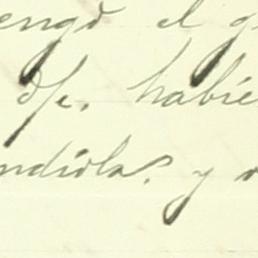 engo el g
dfe. habie
ndiola. y